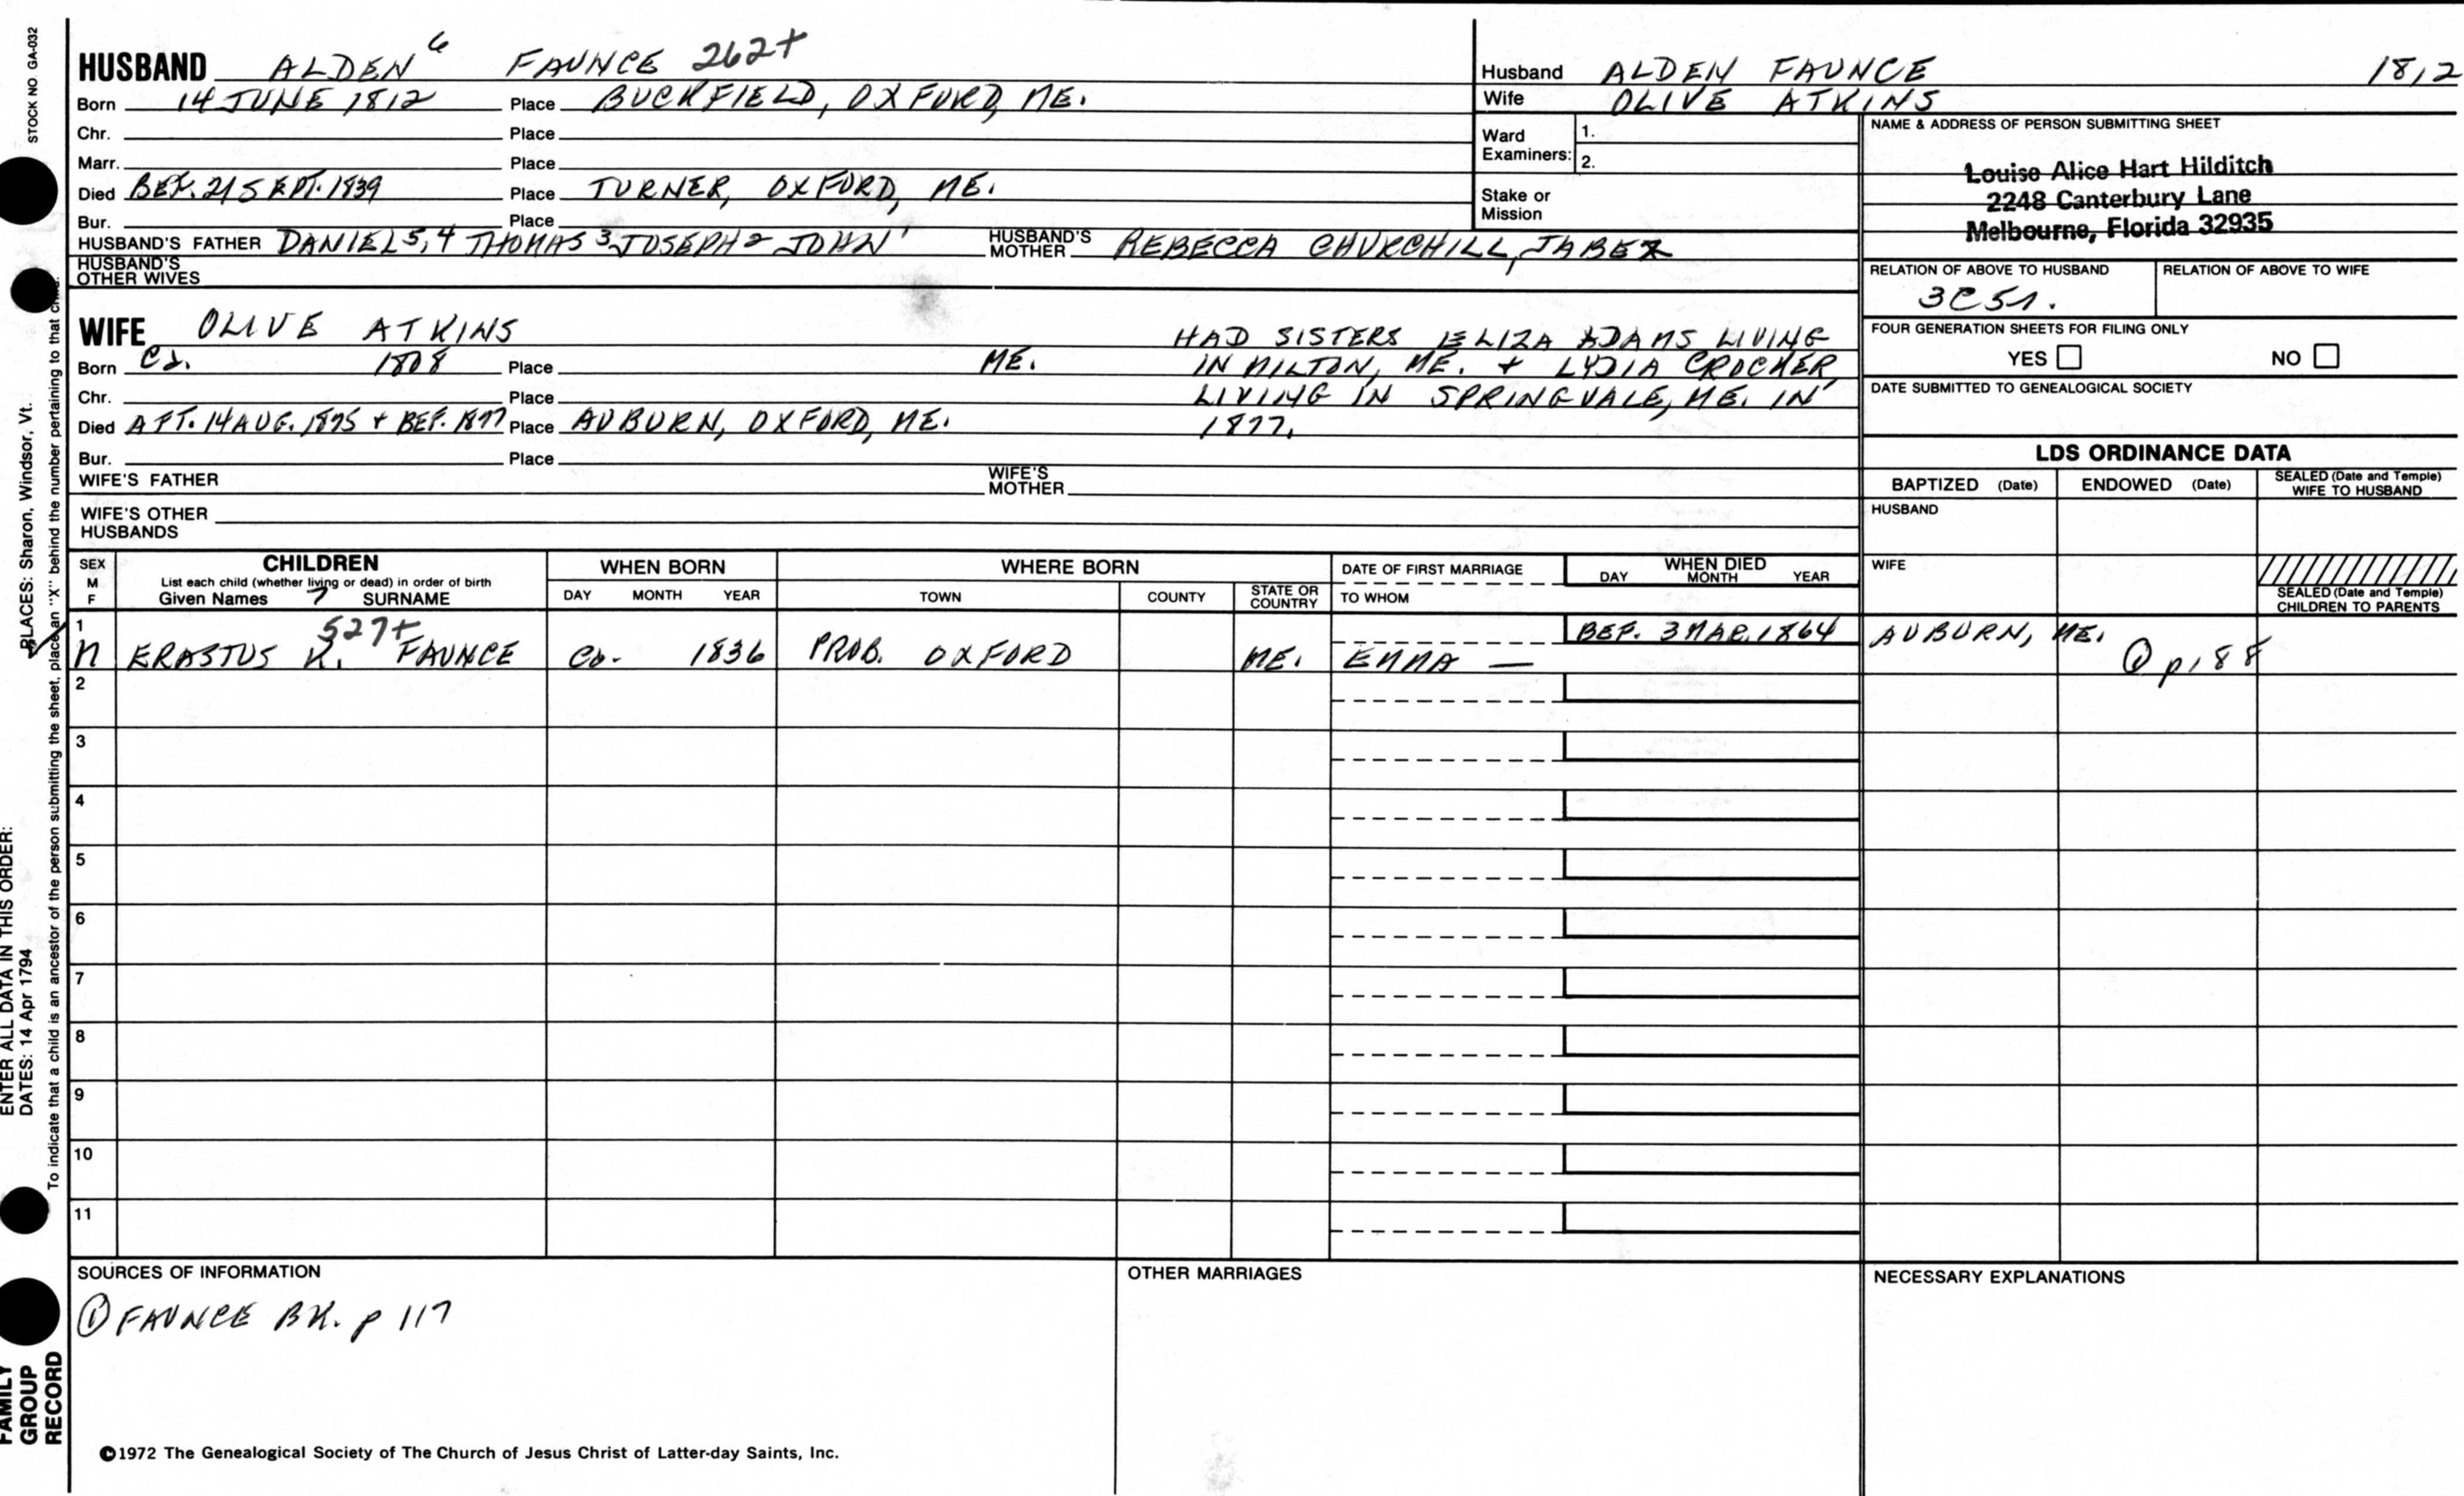 STOCK NO. GA-032
PLACES: Sharon, Windsor, Vt.
ENTER ALL DATA IN THIS ORDER:
DATES: 14 Apr 1794
To indicate that a child is an ancestor of the person submitting the sheet, place an "X" behind the number pertaining to that child.
FAMILY
GROUP
RECORD
HUSBAND ALDEN 6 FAUNCE 262+
Born 14 JUNE 1812 Place BUCKFIELD, OXFORD, ME.
Chr. Place
Marr. Place
Died BEF. 21 SEPT. 1839 Place TURNER, OXFORD, ME.
Bur. Place
HUSBAND'S FATHER DANIEL 5,4 THOMAS 3 JOSEPH 2 JOHN 1 HUSBAND'S MOTHER REBECCA CHURCHILL, JABEZ
HUSBAND'S
OTHER WIVES
Husband ALDEN FAUNCE 1812
Wife OLIVE ATKINS
Ward
Examiners:
1.
2.
Stake or
Mission
NAME & ADDRESS OF PERSON SUBMITTING SHEET
Louise Alice Hart Hilditch
2248 Canterbury Lane
Melbourne, Florida 32935
RELATION OF ABOVE TO HUSBAND RELATION OF ABOVE TO WIFE
3C51.
FOUR GENERATION SHEETS FOR FILING ONLY
YES NO
DATE SUBMITTED TO GENEALOGICAL SOCIETY
WIFE OLIVE ATKINS
Born Ca. 1808 Place ME.
Chr. Place
Died AFT. 14 AUG. 1875 + BEF. 1877 Place AUBURN, OXFORD, ME.
Bur. Place
HAD SISTERS ELIZA ADAMS LIVING
IN MILTON, ME. + LYDIA CROCKER
LIVING IN SPRINGVALE, ME. IN
1877.
WIFE'S FATHER WIFE'S MOTHER
WIFE'S OTHER
HUSBANDS
LDS ORDINANCE DATA
BAPTIZED (Date) ENDOWED (Date) SEALED (Date and Temple) WIFE TO HUSBAND
HUSBAND
WIFE
SEALED (Date and Temple)
CHILDREN TO PARENTS
SEX
M
F
CHILDREN
List each child (whether living or dead) in order of birth
Given Names 7 SURNAME
WHEN BORN
DAY MONTH YEAR
WHERE BORN
TOWN COUNTY STATE OR COUNTRY
DATE OF FIRST MARRIAGE
TO WHOM
WHEN DIED
DAY MONTH YEAR
1 527+ BEF. 3 MAR. 1864 AUBURN, ME.
M ERASTUS K. FAUNCE Ca. 1836 PROB. OXFORD ME. EMMA — ① p 188
2
3
4
5
6
7
8
9
10
11
SOURCES OF INFORMATION
① FAUNCE BK. p 117
OTHER MARRIAGES
NECESSARY EXPLANATIONS
©1972 The Genealogical Society of The Church of Jesus Christ of Latter-day Saints, Inc.